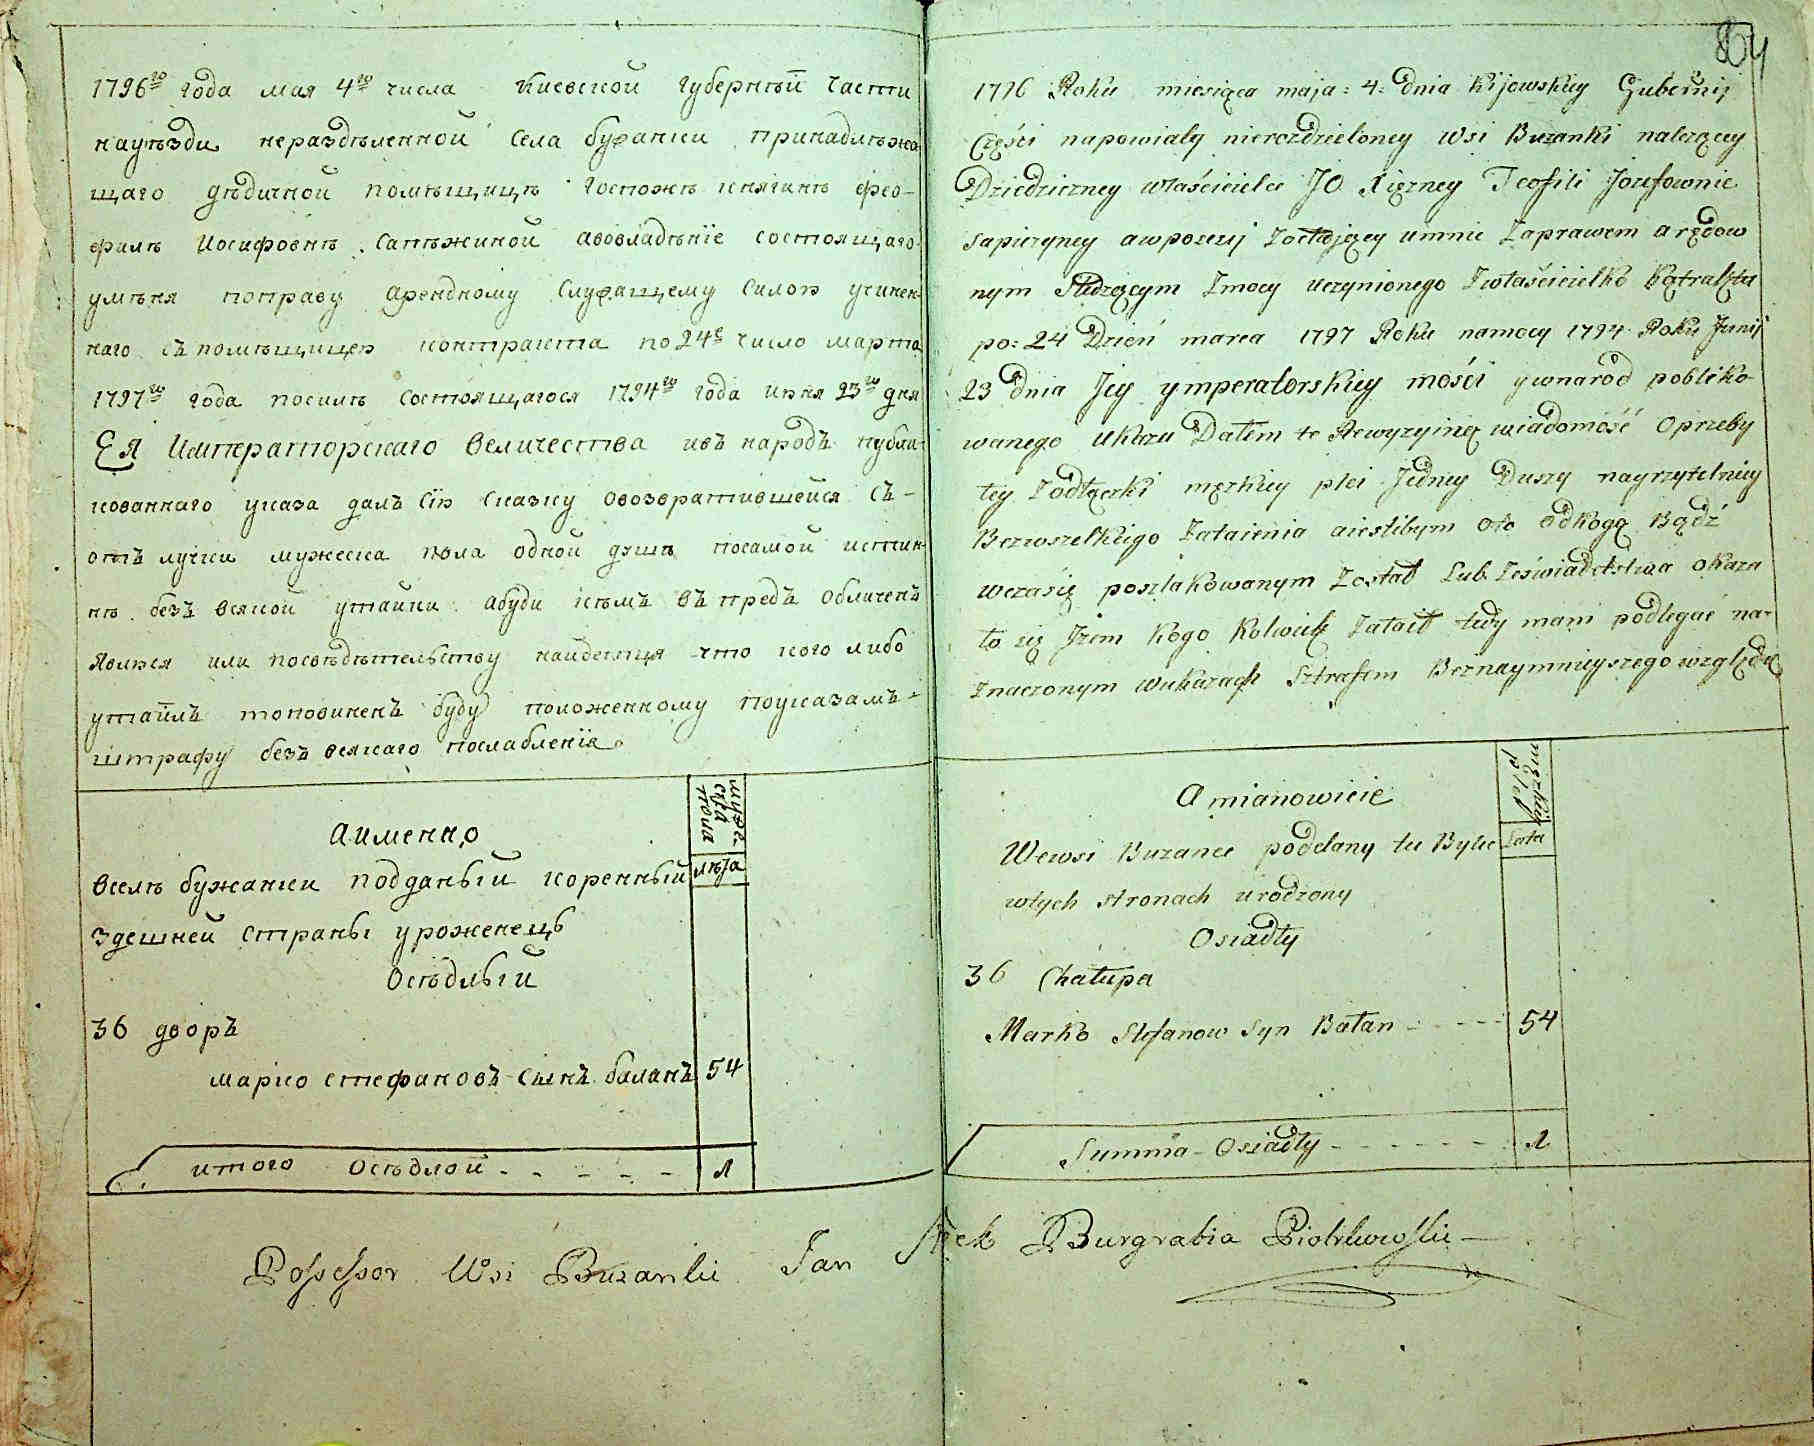 1796го года мая 4го числа Киевской губернѣи части
науѣзди нераздѣленной села бужанки принадлѣжа
щаго дѣдичной помѣщицѣ госпожѣ княгинѣ фео-
филѣ Иосифовнѣ Сапѣжиной авовладѣніе состоящаго
уменя поправу арендному служащему силою учинен
наго съ помѣщицею контракта по 24е число марта
1797го года посилѣ состоящагося 1794го года июня 23го дня
Ея Императорскаго Величества ивъ народъ публи
кованнаго указа далъ сію сказку овозвратившейся съ-
отъ лучки мужеска пола одной душѣ посамой истин
нѣ безъ всякой утайки абуди кемъ въ предъ обличенъ
явлюся или посвѣдѣтельству найдется что кого либо
утаилъ топовиненъ буду положенному поуказамъ-
штрафу безъ всякаго послабленія
аименно
мужес
ска
пола
лѣта
вселѣ бужанки подданый коренный
здешней страны уроженецъ
Осѣдлый
36 дворъ
марко стефановъ сынъ баланъ 54
итого осѣдлой - - - - - 1
864
1796 Roku miesiąca maja: 4: Dnia Kijowskiey Gubernij
Części napowiaty nierozdzieloney Wsi Buzanki nalezącey
Dziedziczney właścicielce JO Xięzney Teofili Jozefownie
Sapiezyney awposesij Zostającey umnie Zaprawem arędow
nym Słuzącym Zmocy uczynionego Zwłaścicielką Kątraktu
po: 24 Dzień marca 1797 Roku namocy 1794 Roku Junij
23 Dnia Jey ymperatorskiey mości ywnaród publiko-
wanego ukazu Dałem te Rewyzyiną wiadomość Oprzeby
tey Zodłączki męzkiey płci Jedney Duszy nayrzytelniey
Bezwszelkiego Zataienia aiesłibym oto odkogą Bądź
wczasię poszlakowanym Został Lub Zeświadectstwa okaza
to się Jzem Kogo Kolwiek Zataił tedy mam podlegać na-
Znaczonym wukazach Sztrafem Beznaymnieyszego względu
A mianowicie
Płci męzkiey
Lata
Wewsi Buzance poddany tu Bylec
wtych stronach urodzony
Osiadły
36 Chałupa
Marko Stefanow Syn Bałan - - - - 54
Summa - Osiadły - - - - - - 1
Possessor Wsi Buzanki Jan Burgrabia Piotrkowski